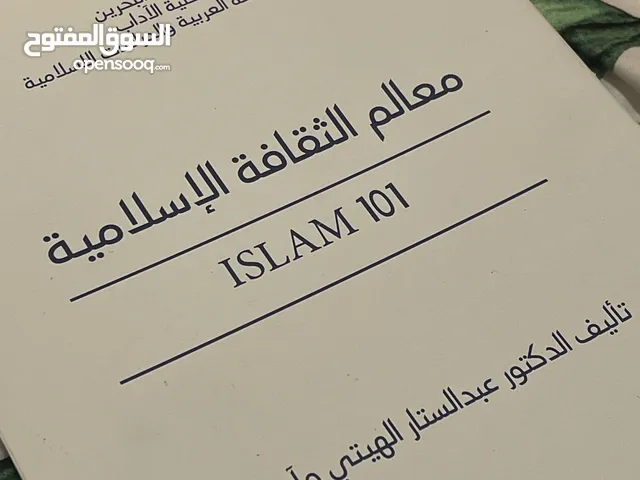 البحرين
كلية الآداب
العربية والدراسات الإسلامية
السوق المفتوح
opensooq.com
معالم الثقافة الإسلامية
ISLAM 101
تأليف الدكتور عبدالستار الهيتي